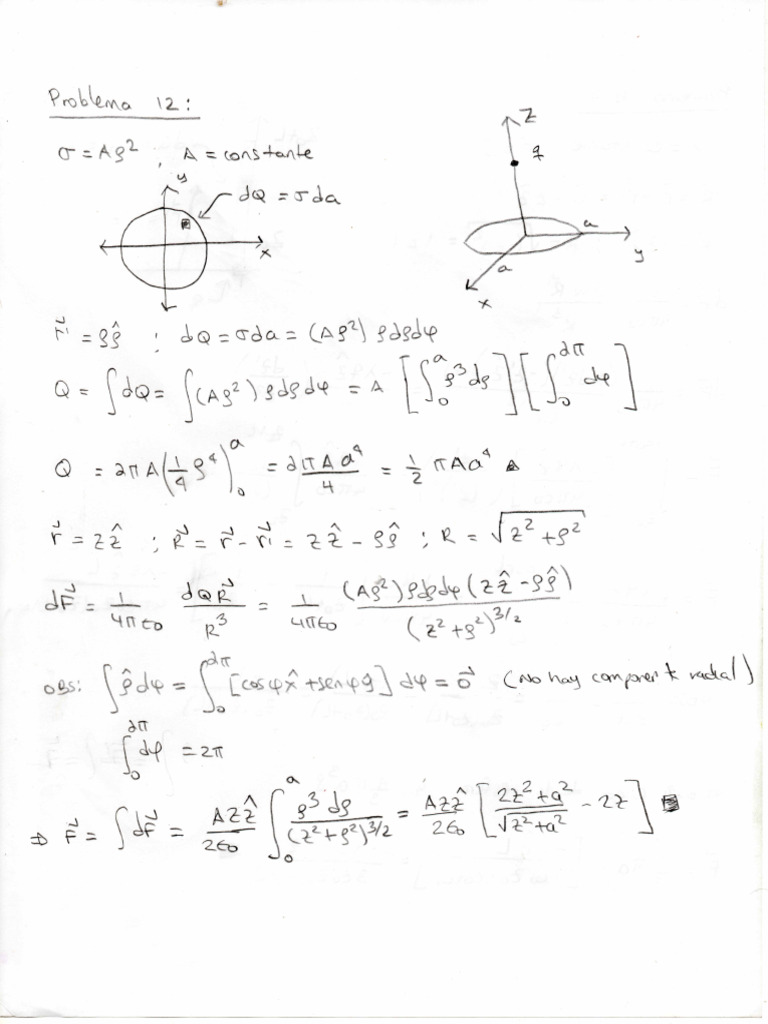 Problema 12:
σ = Aρ² , A = constante
z
q
y
dQ = σda
x
a
y
a
x
r⃗' = ρρ̂ ; dQ = σda = (Aρ²) ρdρdφ
Q = ∫dQ = ∫(Aρ²) ρdρdφ = A [∫₀ᵃ ρ³dρ] [∫₀^2π dφ]
Q = 2πA(1/4 ρ⁴)₀ᵃ = 2πAa⁴/4 = 1/2 πAa⁴
r⃗ = zẑ ; R⃗ = r⃗ - r⃗' = zẑ - ρρ̂ ; R = √(z² + ρ²)
dF⃗ = 1/4πε₀ dQR⃗/R³ = 1/4πε₀ (Aρ²)ρdρdφ(zẑ - ρρ̂)/(z² + ρ²)^3/2
obs: ∫ρ̂dφ = ∫₀^2π [cosφx̂ + senφŷ] dφ = 0⃗ (No hay component radial)
∫₀^2π dφ = 2π
⇒ F⃗ = ∫dF⃗ = Azẑ/2ε₀ ∫₀ᵃ ρ³dρ/(z² + ρ²)^3/2 = Azẑ/2ε₀ [2z² + a²/√(z² + a²) - 2z]